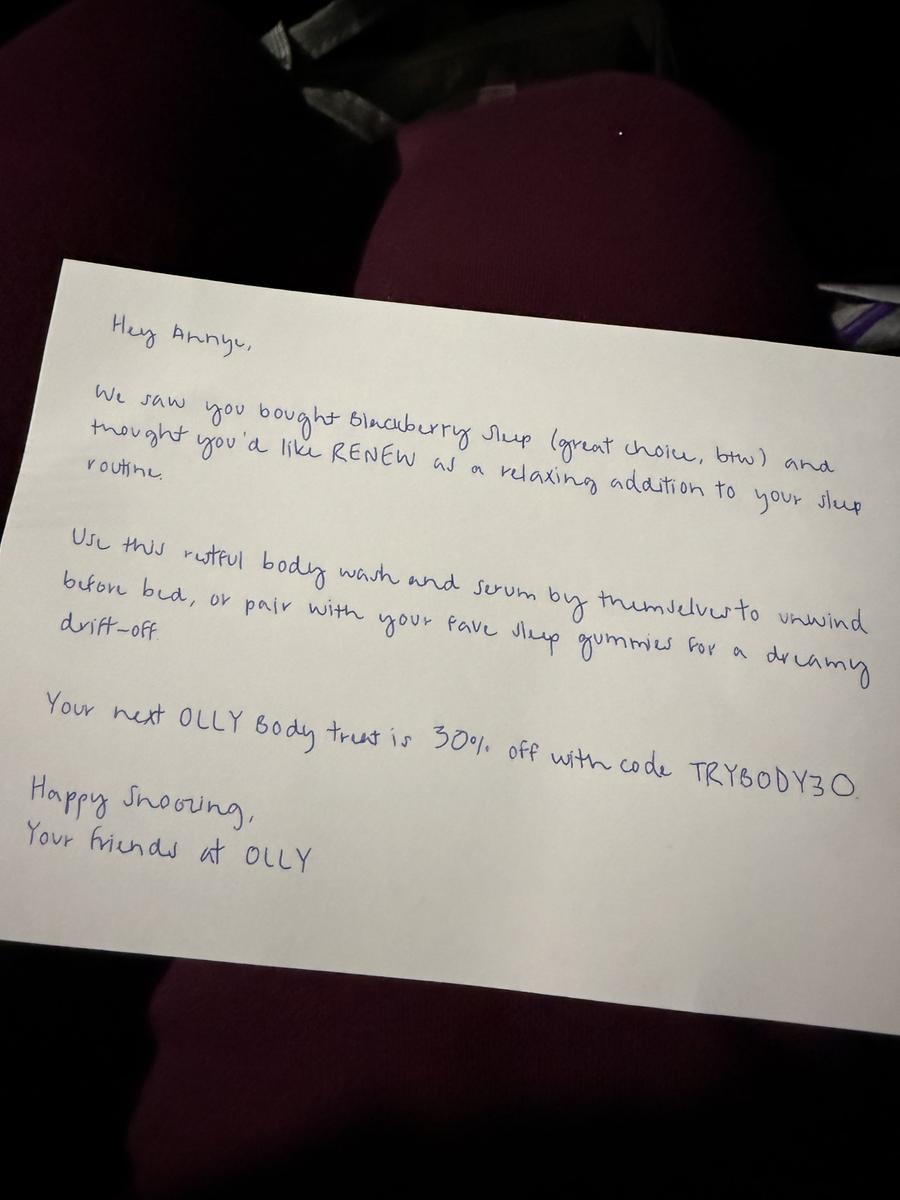 Hey Annye,
We saw you bought Blackberry Sleep (great choice, btw) and
thought you'd like RENEW as a relaxing addition to your sleep
routine.
Use this restful body wash and serum by themselves to unwind
before bed, or pair with your fave sleep gummies for a dreamy
drift-off.
Your next OLLY Body treat is 30% off with code TRYBODY30.
Happy Snoozing,
Your friends at OLLY